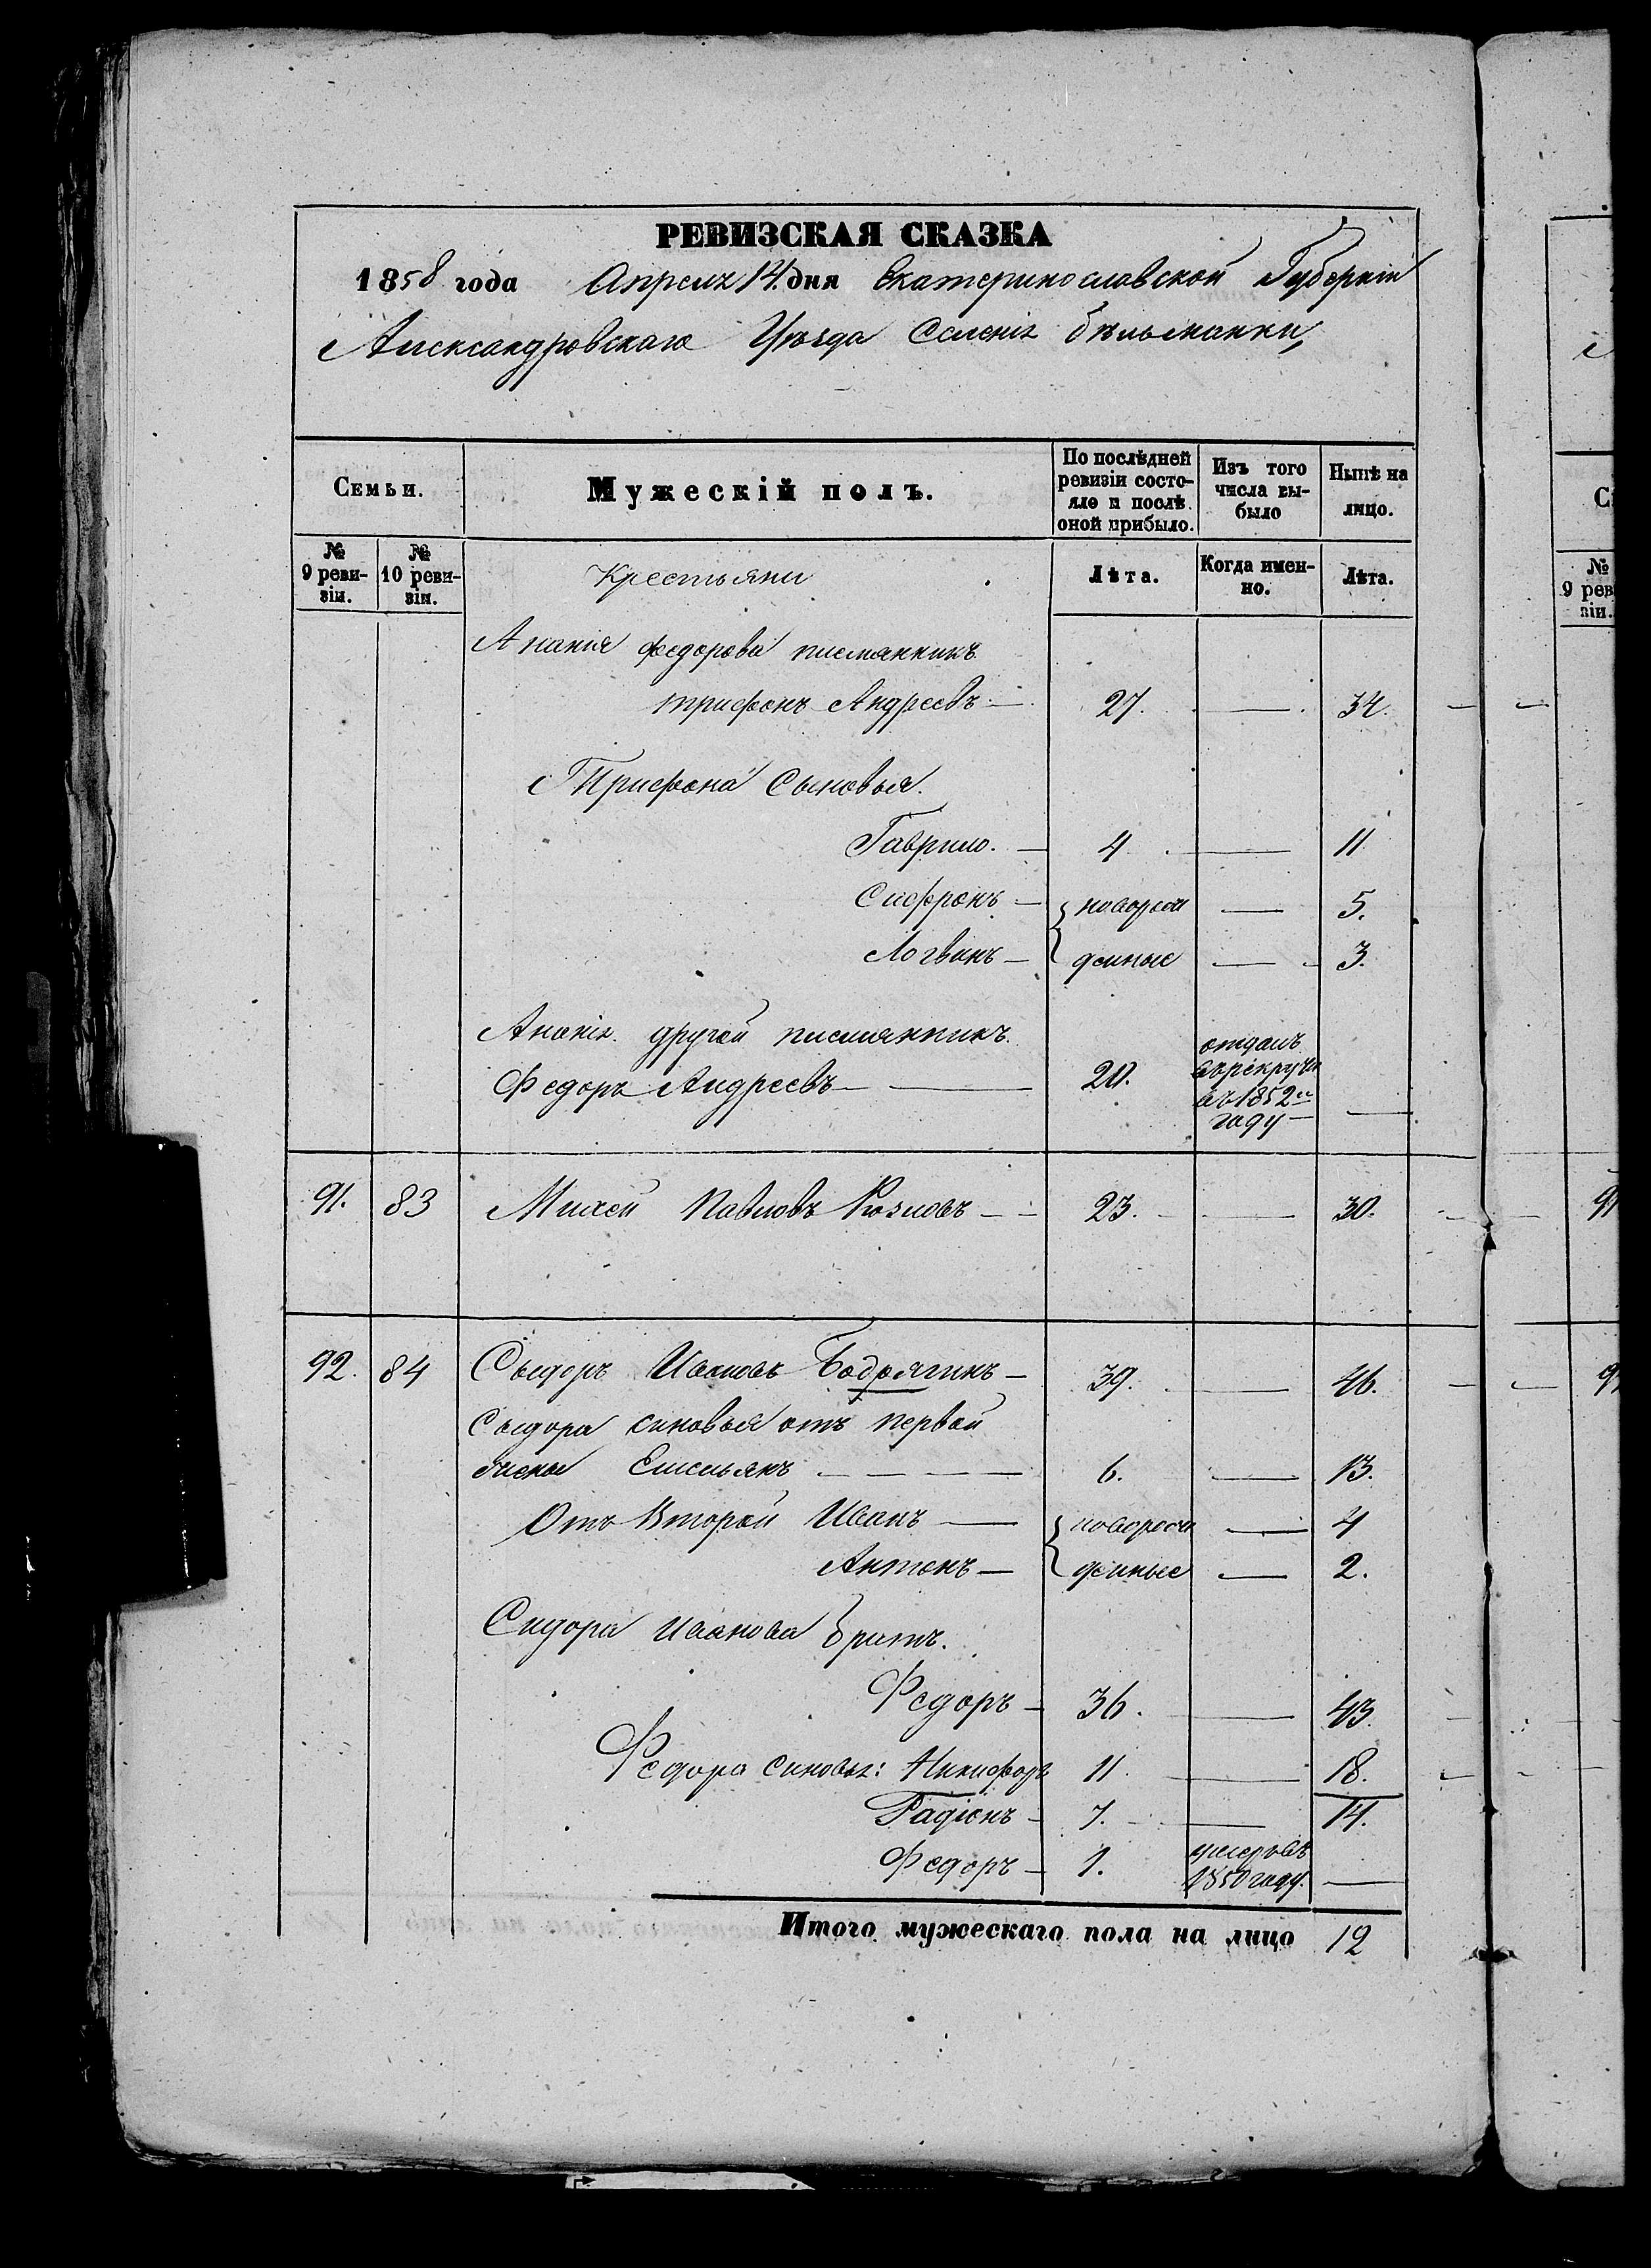 РЕВИЗСКАЯ СКАЗКА
1858 года Апреля 14 дня Екатеринославской Губернии
Александровскаго Уѣзда Селенія бѣльманки,
Семьи.
Мужескій полъ.
По послѣдней ревизіи состояло и послѣ оной прибыло.
Изъ того числа выбыло
Нынѣ на лицо.
№ 9 ревизіи.
№ 10 ревизіи.
Крестьяни
Лѣта.
Когда именно.
Лѣта.
Ананія федорова племянникъ
трифонъ Андреевъ — 27. — 34.
Трифона Сыновья.
Гаврило. — 4 — 11
Сафронъ — новорож — 5.
Логвинъ — денные — 3.
Ананія другой племянникъ
Федоръ Андреевъ — 20. отданъ
въ рекруты
въ 1852м
году —
91. 83 Михей Павловъ Козловъ — 23. — 30.
92. 84 Сыдоръ Ивановъ Бодрягинъ — 39. — 46.
Сыдора синовья отъ первой
жены Емельянъ — 6. — 13.
Отъ Второй Иванъ — новорож — 4
Антонъ — денные — 2.
Сидора Иванова братъ.
Федоръ — 36. — 43.
Федора синовья: Никифоръ 11 — 18.
Радіонъ — 7. — 14.
Федоръ — 1. умеръ въ
1850 году. —
Итого мужескаго пола на лицо 12
С
№
9 рев
зіи.